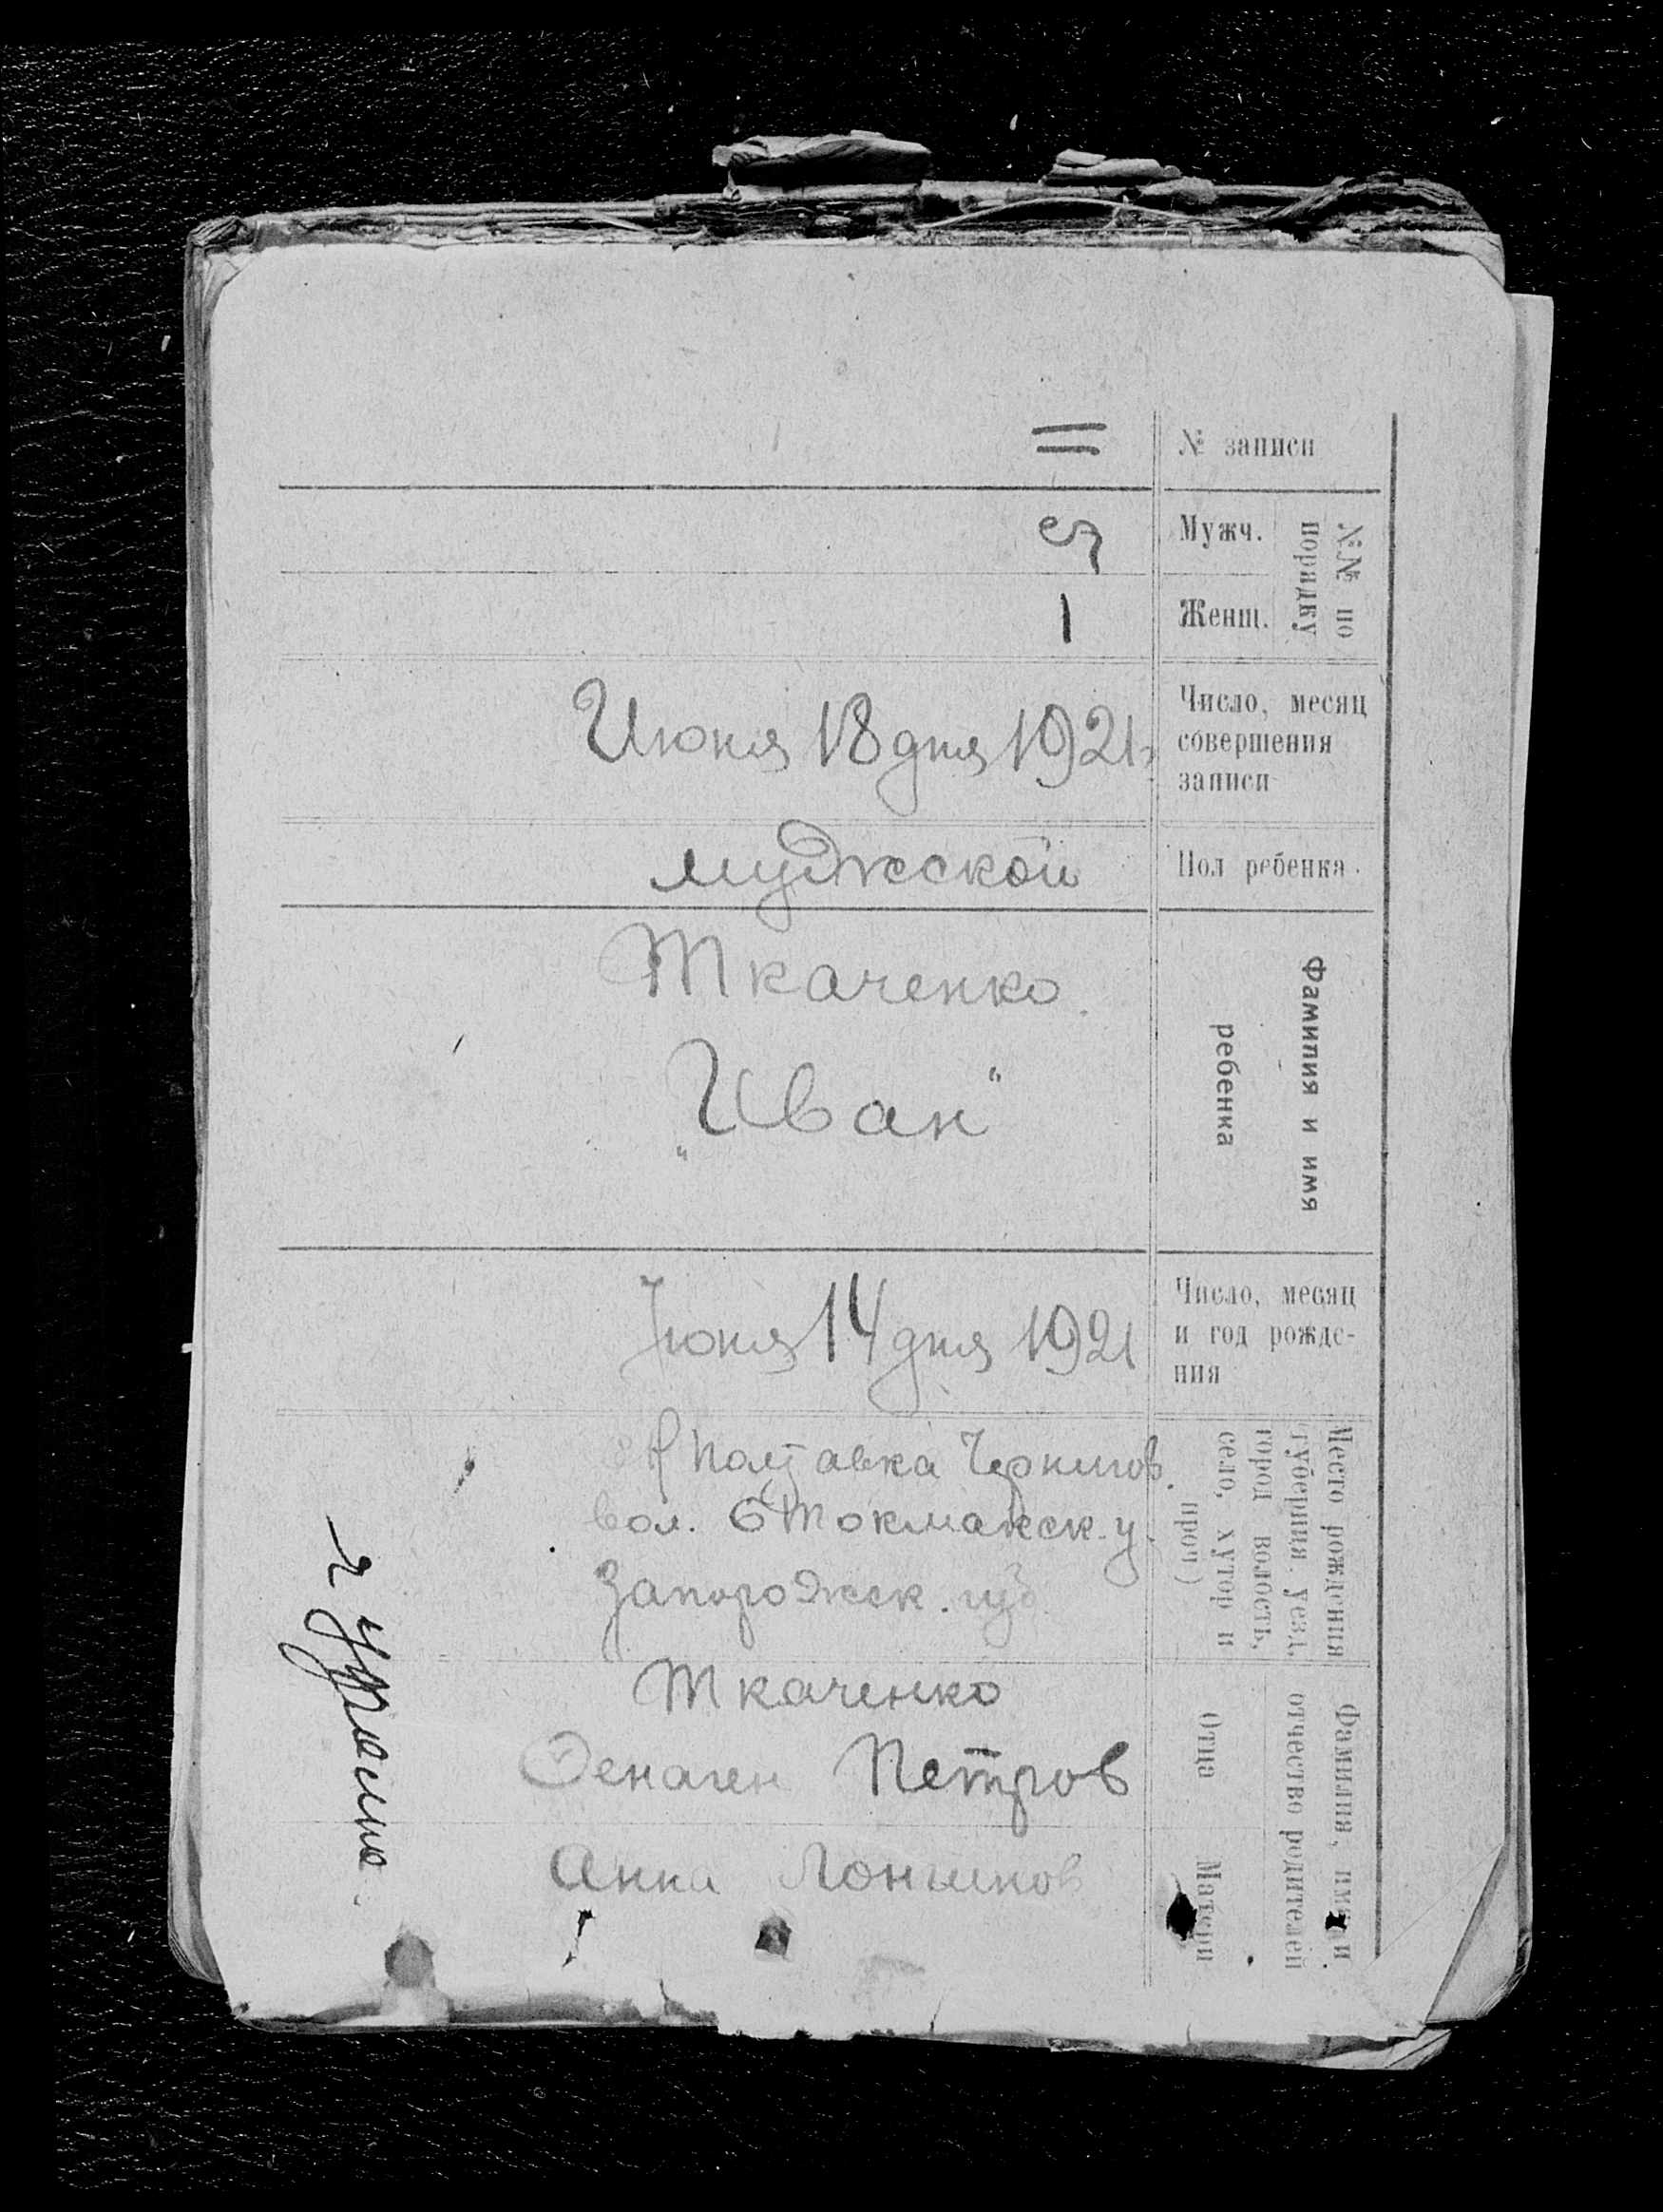 № записи
11
№№ по
порядку
Мужч.
Женщ.
1
Число, месяц
совершения
записи
Июня 18 дня 1921
Пол ребенка
мужской
Фамилия и имя
ребенка
Ткаченко
„Иван“
Число, месяц
и год рожде-
ния
Июня 14 дня 1921
Место рождения
(губерния, уезд,
город, волость,
село, хутор и
проч)
Полтавка Чернигов.
вол. Б Токмакск у.
Запорожск. губ
Фамилия, имя и
отчество родителей
Отца
Ткаченко
Петров
Матери
Анна